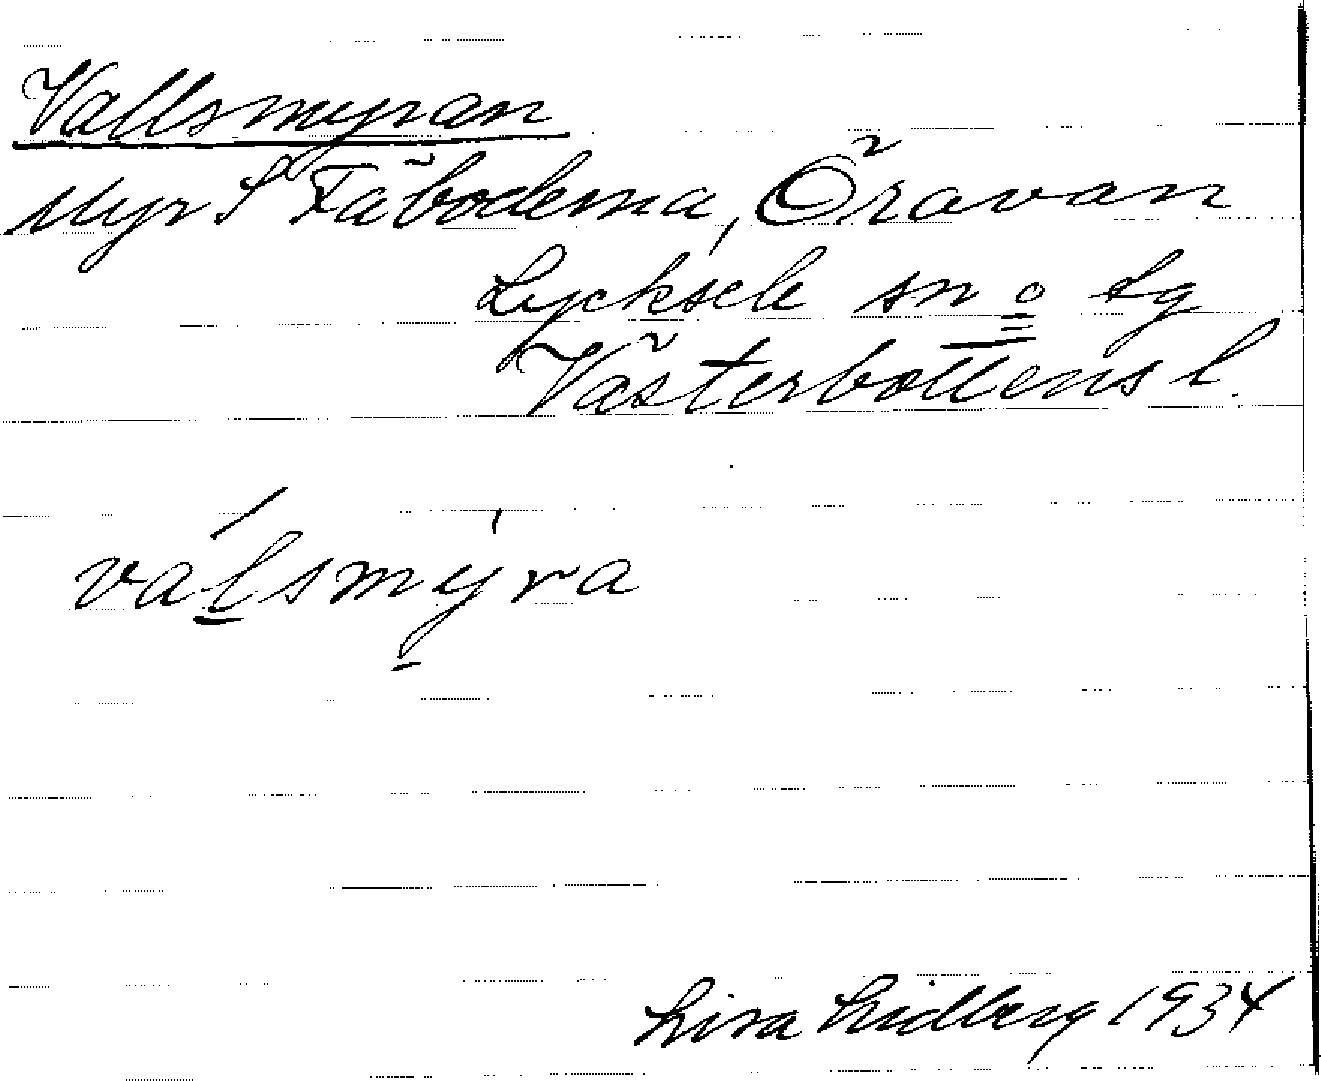 Vallsmyran
Myr S Fäboderna, Öravan
Lycksele sn o tg
Västerbottens l.
válsmýra
Lisa Lidberg 1934